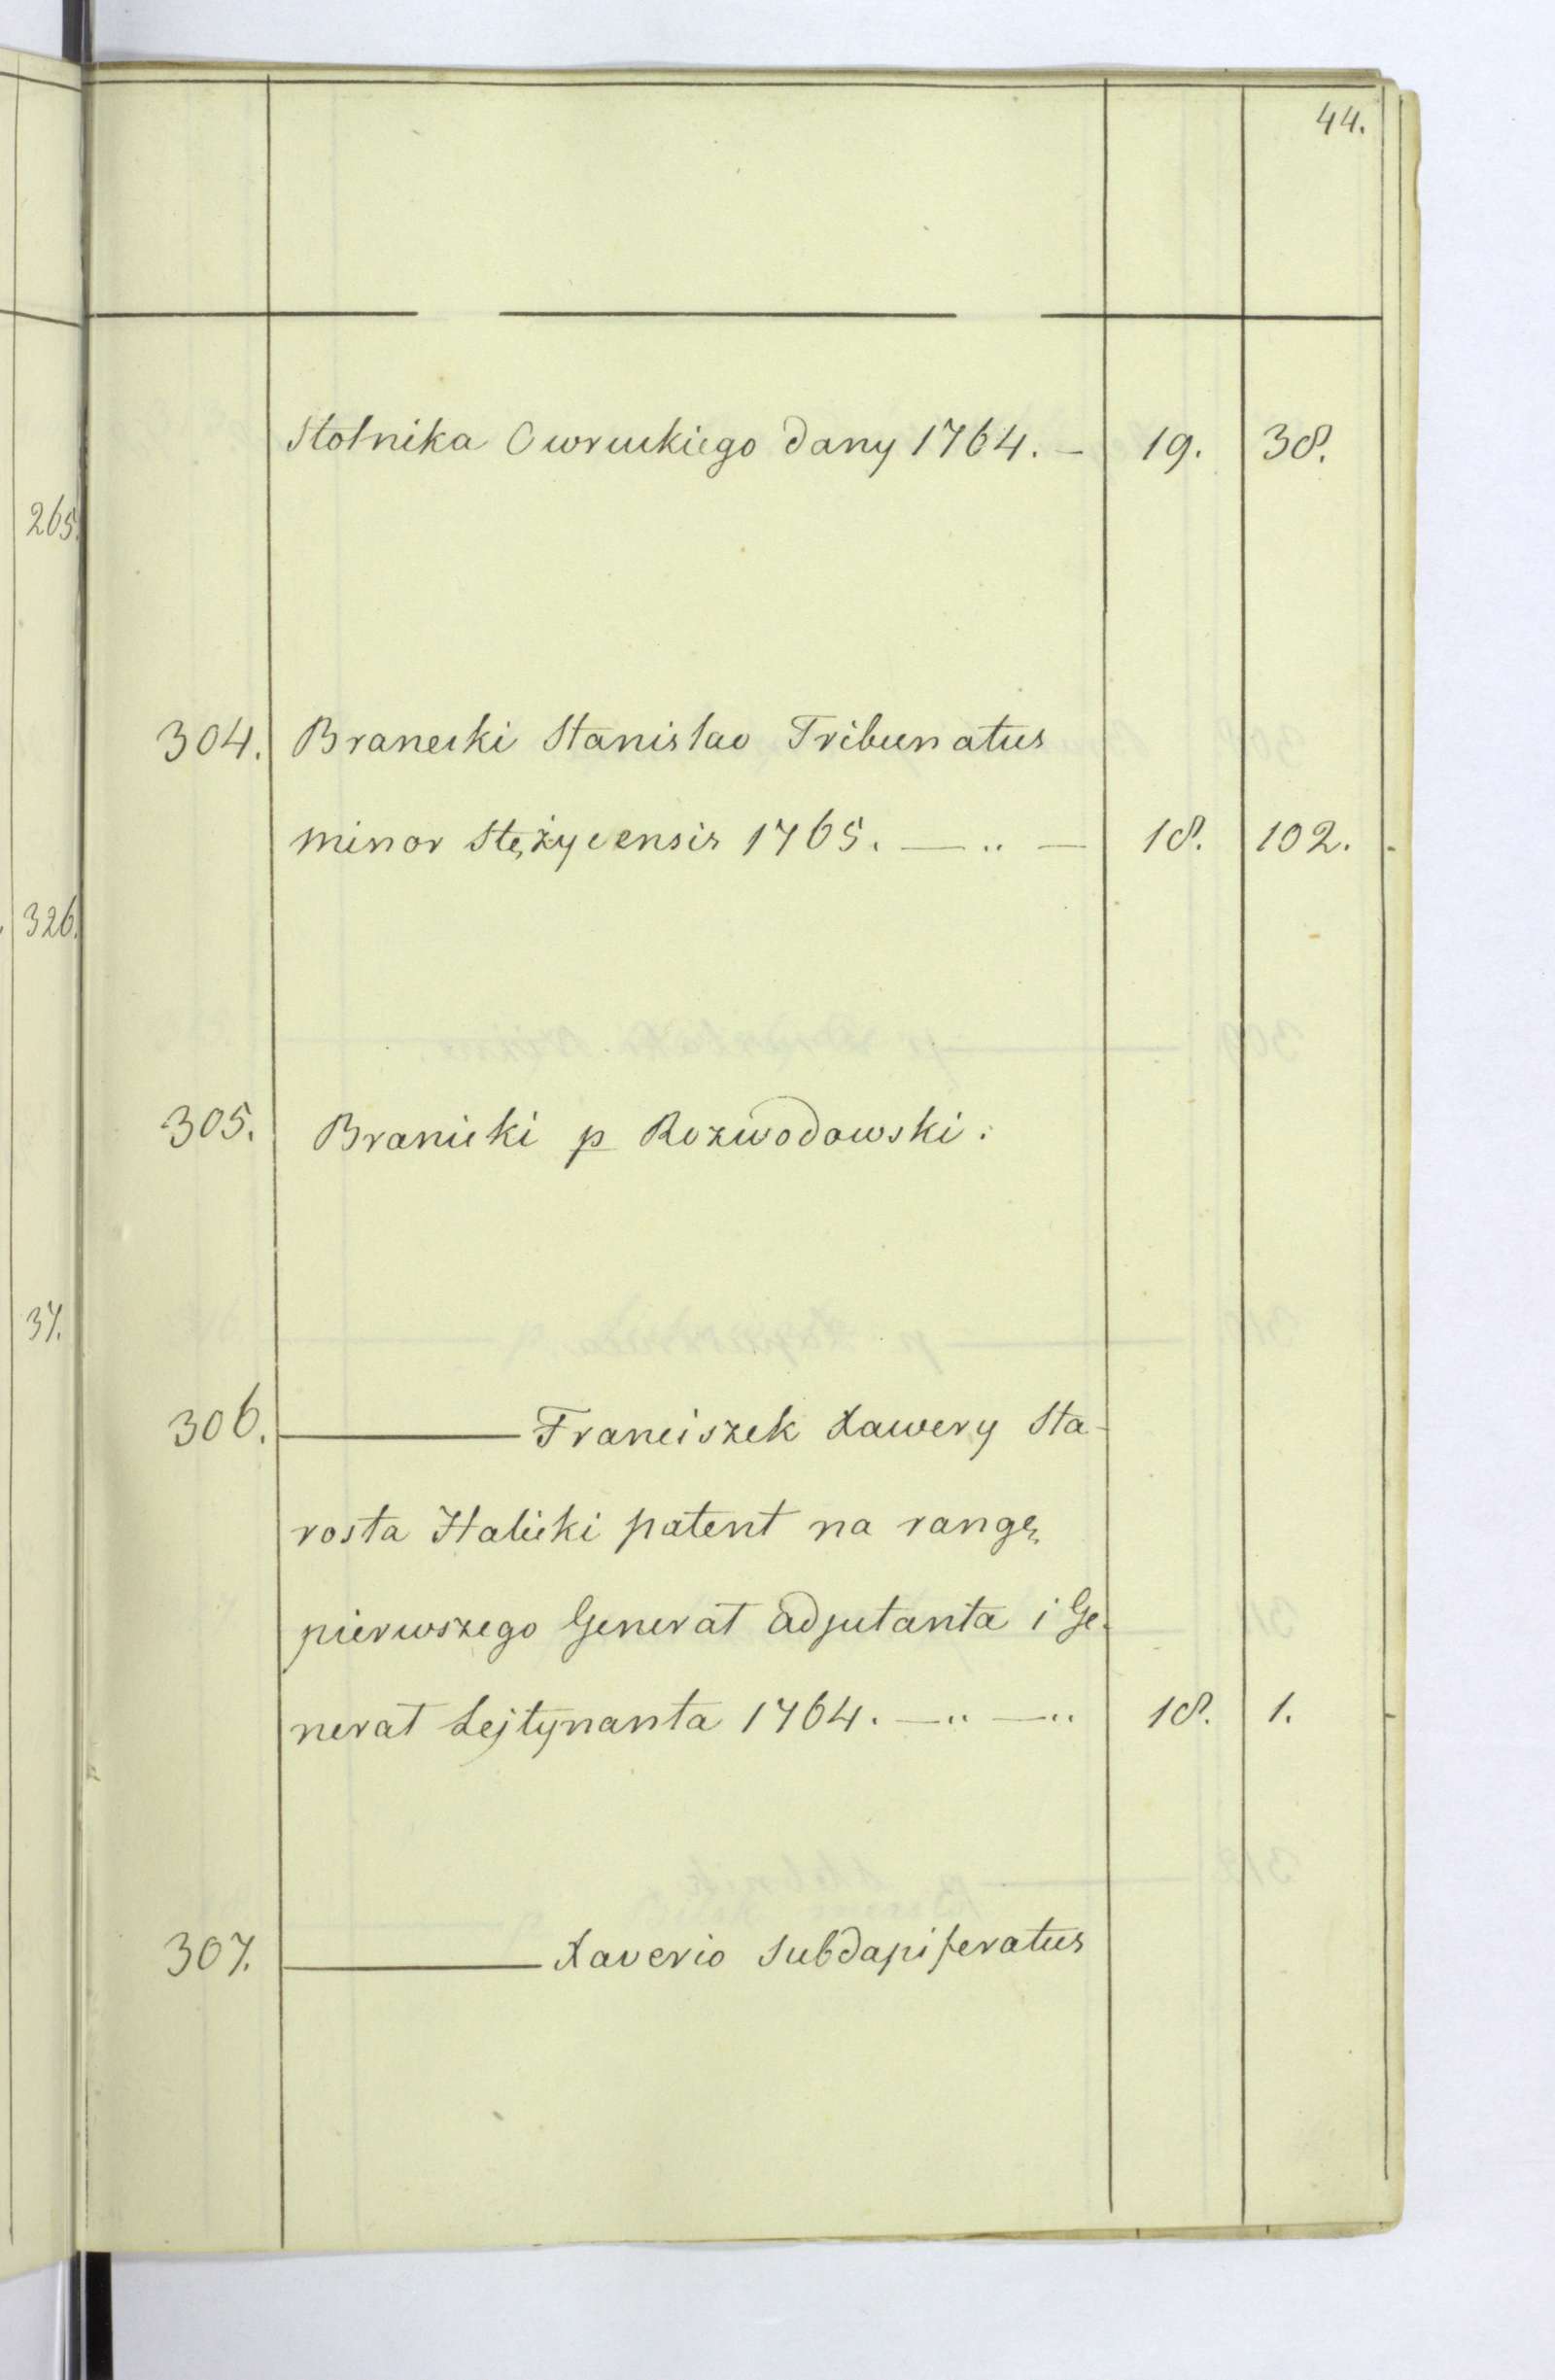 44.
Stolnika Owruckiego dany 1764. – 19. 38.
265.
304. Branecki Stanislao Tribunatus
minor Stężycensis 1765. — „ — 18. 102.
326.
305. Branicki p Rozwodowski.
37.
306. ——— Franciszek Xawery Sta-
rosta Halicki patent na rangę
pierwszego Generał adjutanta i Ge-
nerał Lejtynanta 1764. — „ — „ 18. 1.
307. ——— Xaverio Subdapiferatus